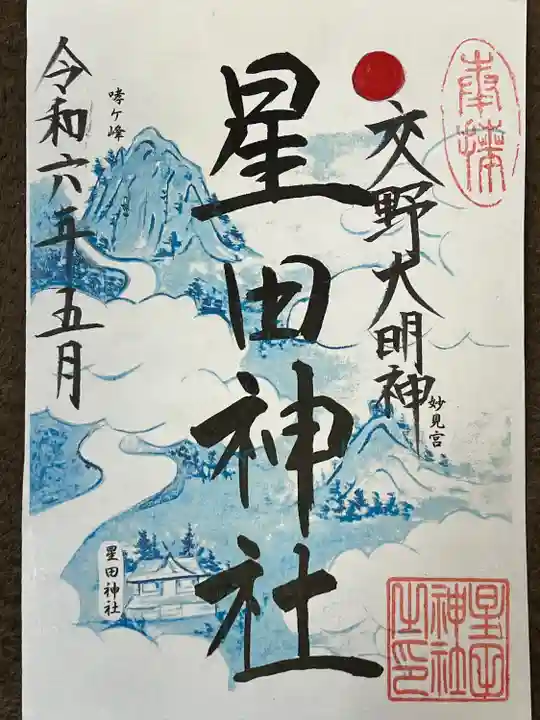 奉拝
交野大明神
妙見宮
星田神社
哮ヶ峰
令和六年五月
星田神社
星田神社之印